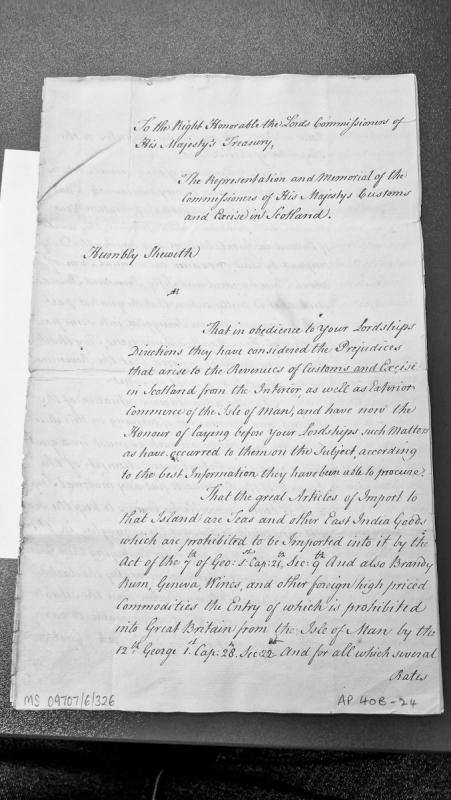 To the Right Honorable the Lords Commissioners of
His Majesty's Treasury,
The Representation and Memorial of the
Commissioners of His Majestys Customs
and Excise in Scotland.
Humbly Sheweth
That in obedience to Your Lordships
Directions they have considered the Prejudices
that arise to the Revenues of Customs and Excise
in Scotland from the Interior, as well as Exterior
Commerce of the Isle of Man, and have now the
Honour of laying before Your Lordships such Matters
as have occurred to them on the Subject, according
to the best Information they have been able to procure.
That the great Articles of Import to
that Island are Teas and other East India Goods
which are prohibited to be Imported into it by the
Act of the 7th of Geo: 1st Cap: 21, Sec: 9th And also Brandy
Rum, Geneva, Wines, and other foreign high priced
Commodities the Entry of which is prohibited
into Great Britain from the Isle of Man by the
12th George 1st Cap: 28. Sec: 22 And for all which several
Rates
MS 09707/6/326
AP 40B-24